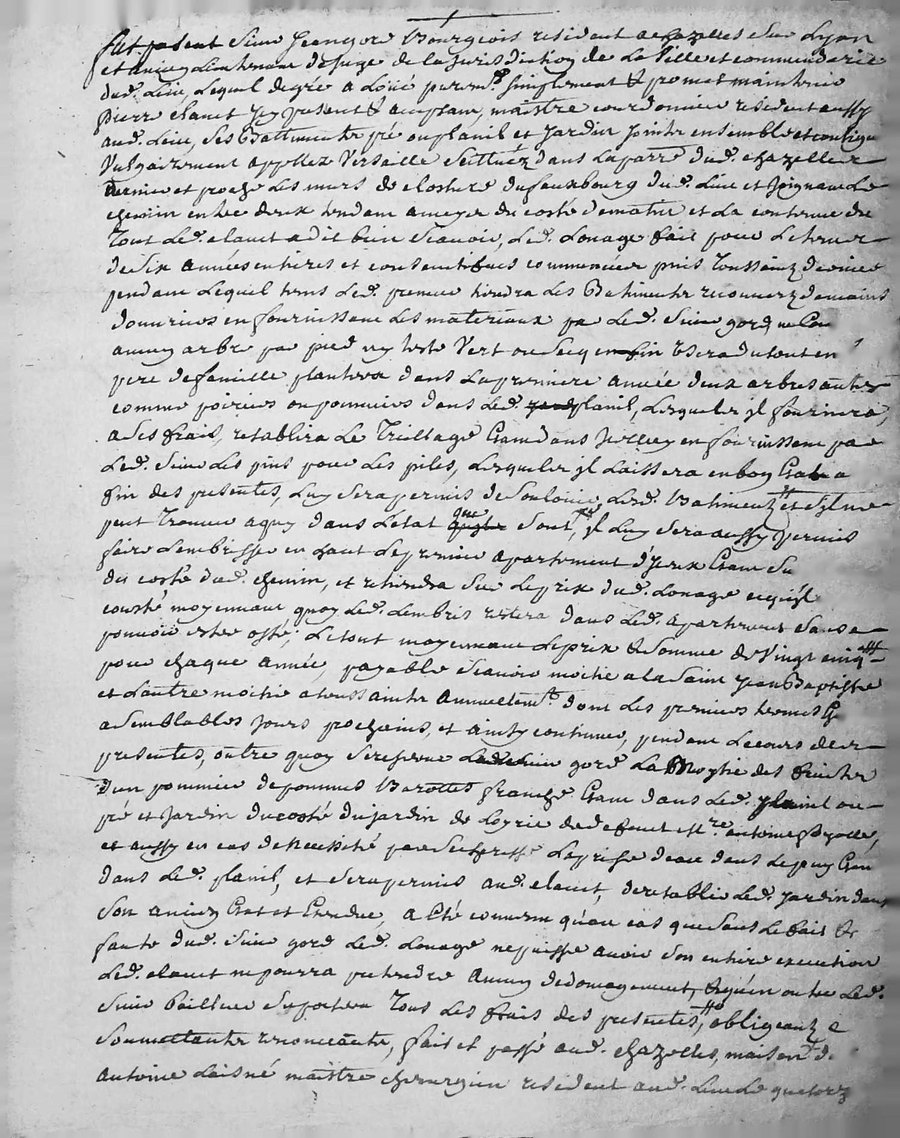 fut present Sieur Jean gord Bourgeois resident a chazelles sur Lyon
et ancien Lieutenant de juge de la jurisdiction de La Ville et commanderie
dud. Lieu, Lequel de gré a Loüé purem.t simplement & promet maintenir
pierre clauet jcy present & acceptant, maistre cordonnier resident aussy
aud. Lieu, Ses Battiments pré ou planil et jardin joints ensemble et contigu
Vulgairement appellez Versaille Scittuéz dans la parr.e dud. chazelles
derrier et proche Les murs de closture du fauxbourg dud. Lieu et joignant Le
chemin entre deux tendant a du costé de matin et La contenue du
Tout Led. clauet a dit bien Scauoir, Led. Loüage fait pour Le terme
de Six années entieres et consecutiues commencées puis Toussaintz dernier
pendant Lequel tems Led. preneur tiendra Les Batiments recouuerz de mains
d'ouuriers en fournissant Les materiaux par Led. Sieur gord, ne
aucun arbre par pied ny teste Vert ou Secq enfin Usera du tout en
pere de famille plantera dans La premiere année deux arbres antez
comme poiriers ou pommiers dans Led. planil, Lesquels jl fournira,
a Ses frais, retablira Le Treillage Etant dans jceluy en fournissant par
Led. Sieur Les pins pour Les piles, Lesquels jl Laissera en bon Etat a
fin des presentes, Luy Sera permis de Les d. Batiments et S'il ne
peut Trouuer a quy dans L'etat que sont, jl Luy Sera aussy permis
faire Lembrisser en haut Le premier apartement d'jceux Etant Su
du costé dud. chemin, et retiendra Sur Le prix dud. Loüage ce qu'jl
cousté moyennant quoy Led. Lembris restera dans Led. apartement Sans
pouuoir estre osté; Le tout moyennant Le prix & Somme de Vingt cinq tt
pour chaque année, payable Scauoir moitié a la Saint Jean Baptiste
et L'autre moitié a toussaints annuellem.t dont Les premiers termes
a Semblables jours prochains, et ainsy continuer, pendant Le cours des
presentes, outre quoy Se reserve Led. Sieur gord La Moytié des fruits
d'un pommier de pommes Barottes franche Etant dans Led. planil ou
pré et jardin du costé du jardin de de deffunt M.re antoine,
et aussy en cas de necessité par Se d'eau dans Le puy Etant
dans Led. planil, et Sera permis aud. clauet, de retablir Led. jardin dans
Son ancien Etat et Etendue, a Eté conuenu qu'au cas que Sans Le fait &
faute dud. Sieur gord Led. Loüage ne puisse auoir Son entiere execution
Led. clauet ne pourra pretendre aucun dedomagement, en outre Led.
Sieur bailleur Suportera Tous Les frais des presentes, obligeantz
Soumettants renonceants, fait et passé aud. chazelles, maison de
Antoine Laisné maistre chirurgien resident aud. Lieu Le quatorz